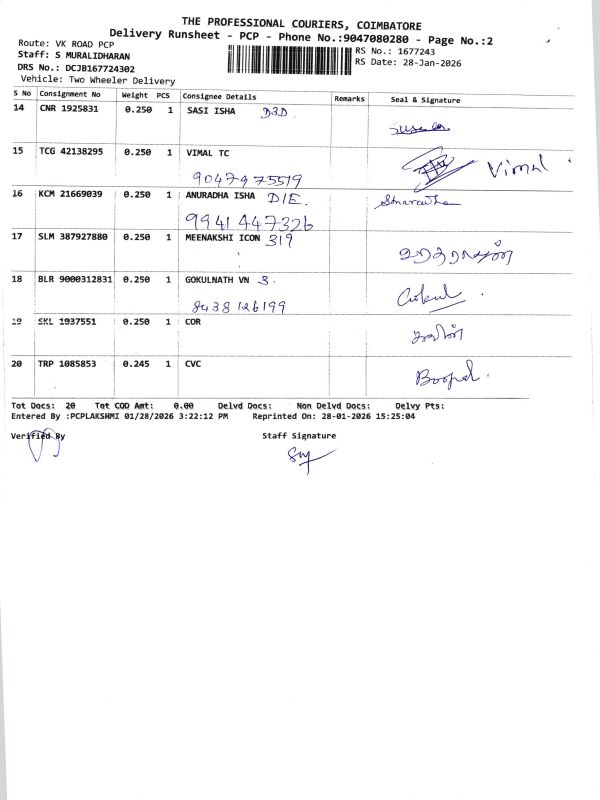 THE PROFESSIONAL COURIERS, COIMBATORE
Delivery Runsheet - PCP - Phone No.:9047080280 - Page No.:2
Route: VK ROAD PCP
Staff: S MURALIDHARAN
DRS No.: DCJB167724302
Vehicle: Two Wheeler Delivery
RS No.: 1677243
RS Date: 28-Jan-2026
S No Consignment No Weight PCS Consignee Details Remarks Seal & Signature
14 CNR 1925831 0.250 1 SASI ISHA D3D
15 TCG 42138295 0.250 1 VIMAL TC Vimal
9047975519
16 KCM 21669039 0.250 1 ANURADHA ISHA D1E.
9941447326
17 SLM 387927880 0.250 1 MEENAKSHI ICON 319
18 BLR 9000312831 0.250 1 GOKULNATH VN 3. Gokul
8438126199
19 SKL 1037551 0.250 1 COR
20 TRP 1085853 0.245 1 CVC Boopal.
Tot Docs: 20 Tot COD Amt: 0.00 Delvd Docs: Non Delvd Docs: Delvy Pts:
Entered By :PCPLAKSHMI 01/28/2026 3:22:12 PM Reprinted On: 28-01-2026 15:25:04
Verified By Staff Signature